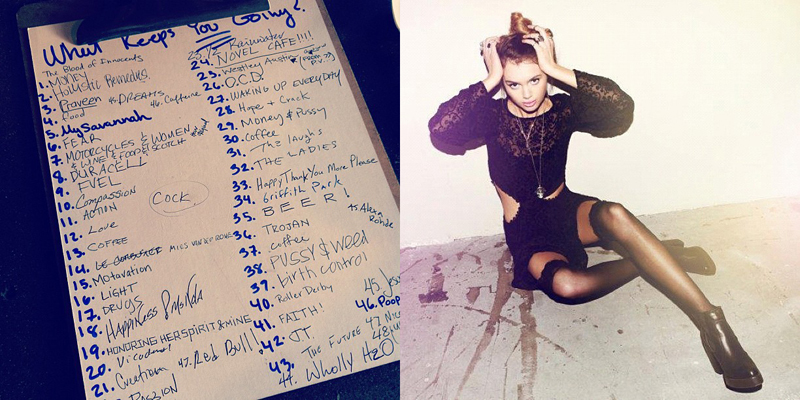 What Keeps You Going?
The Blood of Innocents
1. MONEY
2. Holistic Remedies
3. Praveen
4. Food
46. Caffeine
5. My Savannah
6. FEAR
7. MOTORCYCLES & WOMEN
& WINE & FOOD & SCOTCH
8. DURACELL
9. FUEL
10. Compassion
11. ACTION
12. Love
13. COFFEE
14.
15. Motavation
16. LIGHT
17. DRUGS
18. Happiness
19. HONORING HER SPIRIT & MINE
20. Vicodin
21. Creation
47. Red Bull!
PASSION
Cock.
Rainwater
24. NOVEL CAFE!!!!
25. Westley Austin
26. O.C.D.
27. WAKING UP EVERYDAY
28. Hope + Crack
29. Money & Pussy
30. Coffee
31. The laughs
32. THE LADIES
33. Happy Thank You More Please
34. Griffith Park
35. BEER!
36. TROJAN
37. coffee
38. PUSSY & WEED
39. birth control
40. Roller Derby
41. FAITH!
42. JT
43. The FUTURE
44. Wholly H2O
46. Poop